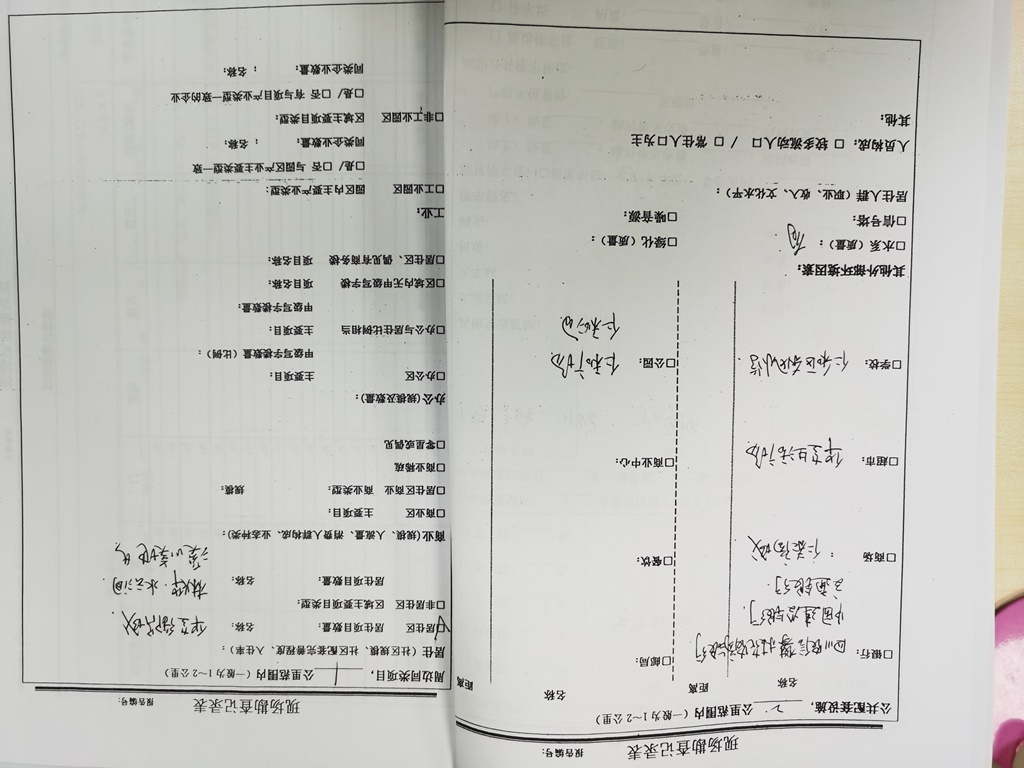 现场勘查记录表
报告编号:
公共配套设施, 2 公里范围内 (一般为1~2公里)
名称 距离 名称 距离
□银行: □邮局:
中国建设银行
□商场: □餐饮:
□超市: 华芝生活广场 □商业中心:
□学校: □公园: 仁和广场
仁和公园
其他外部环境因素:
□水系(质量): 有 □绿化(质量):
□信号塔: □噪音源:
居住人群(职业、收入、文化水平):
人员构成: □ 较多流动人口 / □ 常住人口为主
其他:
现场勘查记录表
报告编号:
周边同类项目, 1 公里范围内 (一般为1~2公里)
居住(社区规模、社区配套完善程度、入住率):
□居住区 居住项目数量: 名称:
□非居住区 区域主要项目类型:
居住项目数量: 名称:
商业(规模、人流量、消费人群构成、业态种类):
□商业区 主要项目:
□居住区商业 商业类型: 规模:
□商业稀疏
□零星或偶见
办公(规模及数量):
□办公区 主要项目:
甲级写字楼数量(比例):
□办公与居住比例相当 主要项目:
甲级写字楼数量:
□区域内无甲级写字楼 项目名称:
□居住区、偶见有商务楼 项目名称:
工业:
□工业园区 园区内主要产业类型:
□是/□否 与园区产业主要类型一致
同类企业数量: ;名称:
□非工业园区 区域主要项目类型:
□是/□否 有与项目产业类型一致的企业
同类企业数量: ;名称: